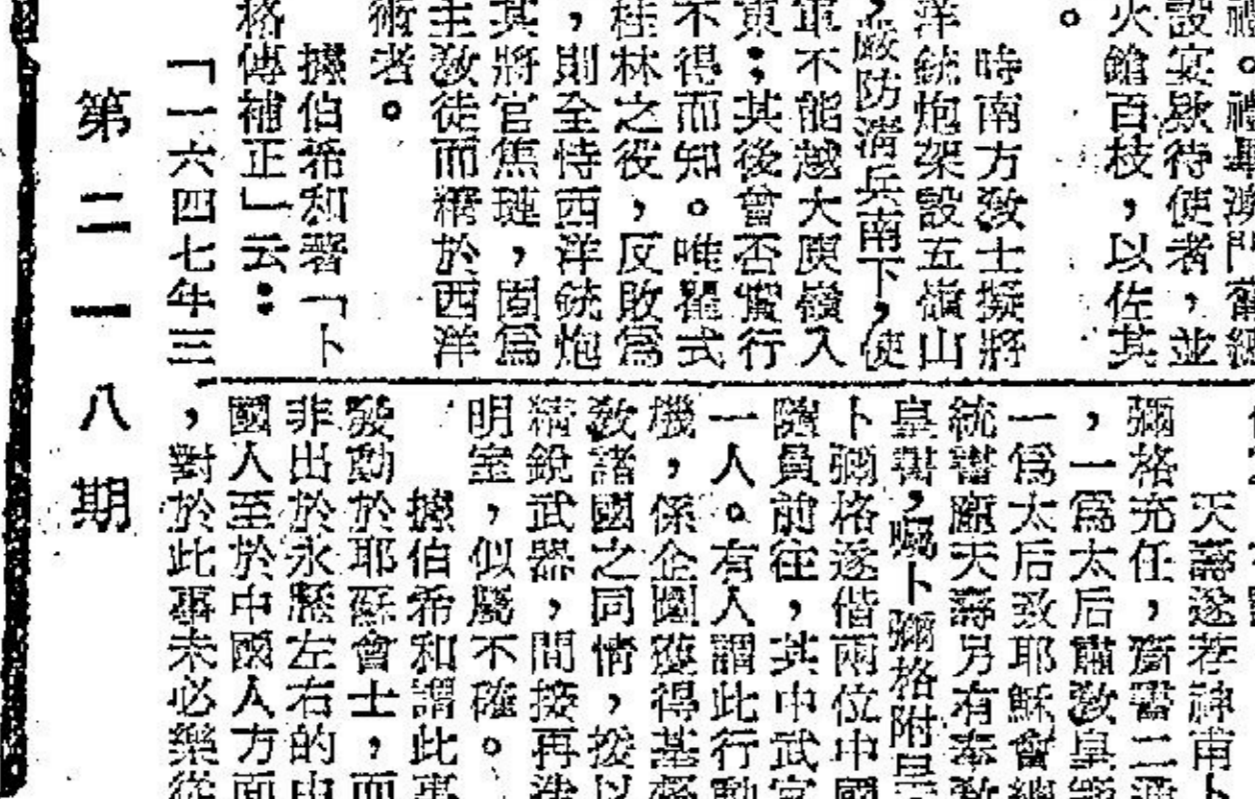 禮。禮畢澳門舊總
設宴歇待使者，並
火鎗百枝，以佐其
。
時南方教士擬將
洋銃炮架設五嶺山
，嚴防滿兵南下，使
軍不能越大庾嶺入
東；其後曾否實行
不得而知。唯瞿式
桂林之役，反敗爲
，則全恃西洋銃炮
其將官焦璉，固爲
主教徒而精於西洋
術者。
據伯希和著「卜
格傳補正」云：
「一六四七年三
天壽遂荐神甫卜
彌格充任，齎書二通
，一爲太后肅教皇
一爲太后致耶穌會總
統書龐天壽另有奉教
皇書，囑卜彌格附呈
卜彌格遂偕兩位中國
隨員前往，其中武官
一人。有人謂此行動
機，係企圖獲得基督
教諸國之同情，援以
精銳武器，間接再造
明室，似屬不確。
據伯希和謂此事
發動於耶穌會士，而
非出於永曆左右的中
國人至於中國人方面
，對於此事未必樂從
第二一八期